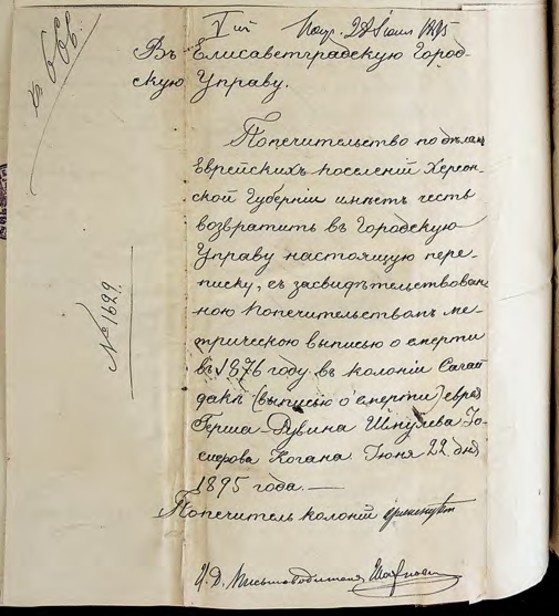 V
1895
Въ Елисаветградскую Город-
скую Управу.
№ 666.
Попечительство по дѣлам
Еврейскихъ поселеній Херсон-
ской Губерніи имѣетъ честь
возвратить въ Городскую
Управу настоящую пере-
писку, съ засвидѣтельствован-
ною Попечительствомъ ме-
трическою выписью о смерти
въ 1876 году въ колоніи Сагай
дакѣ (выписью о смерти) еврея
Герша-Рувина Шпулева Іо-
Когана. Іюня 22 дня
1895 года.—
№ 1629.
Попечитель колоній
И. Д. Письмоводителя